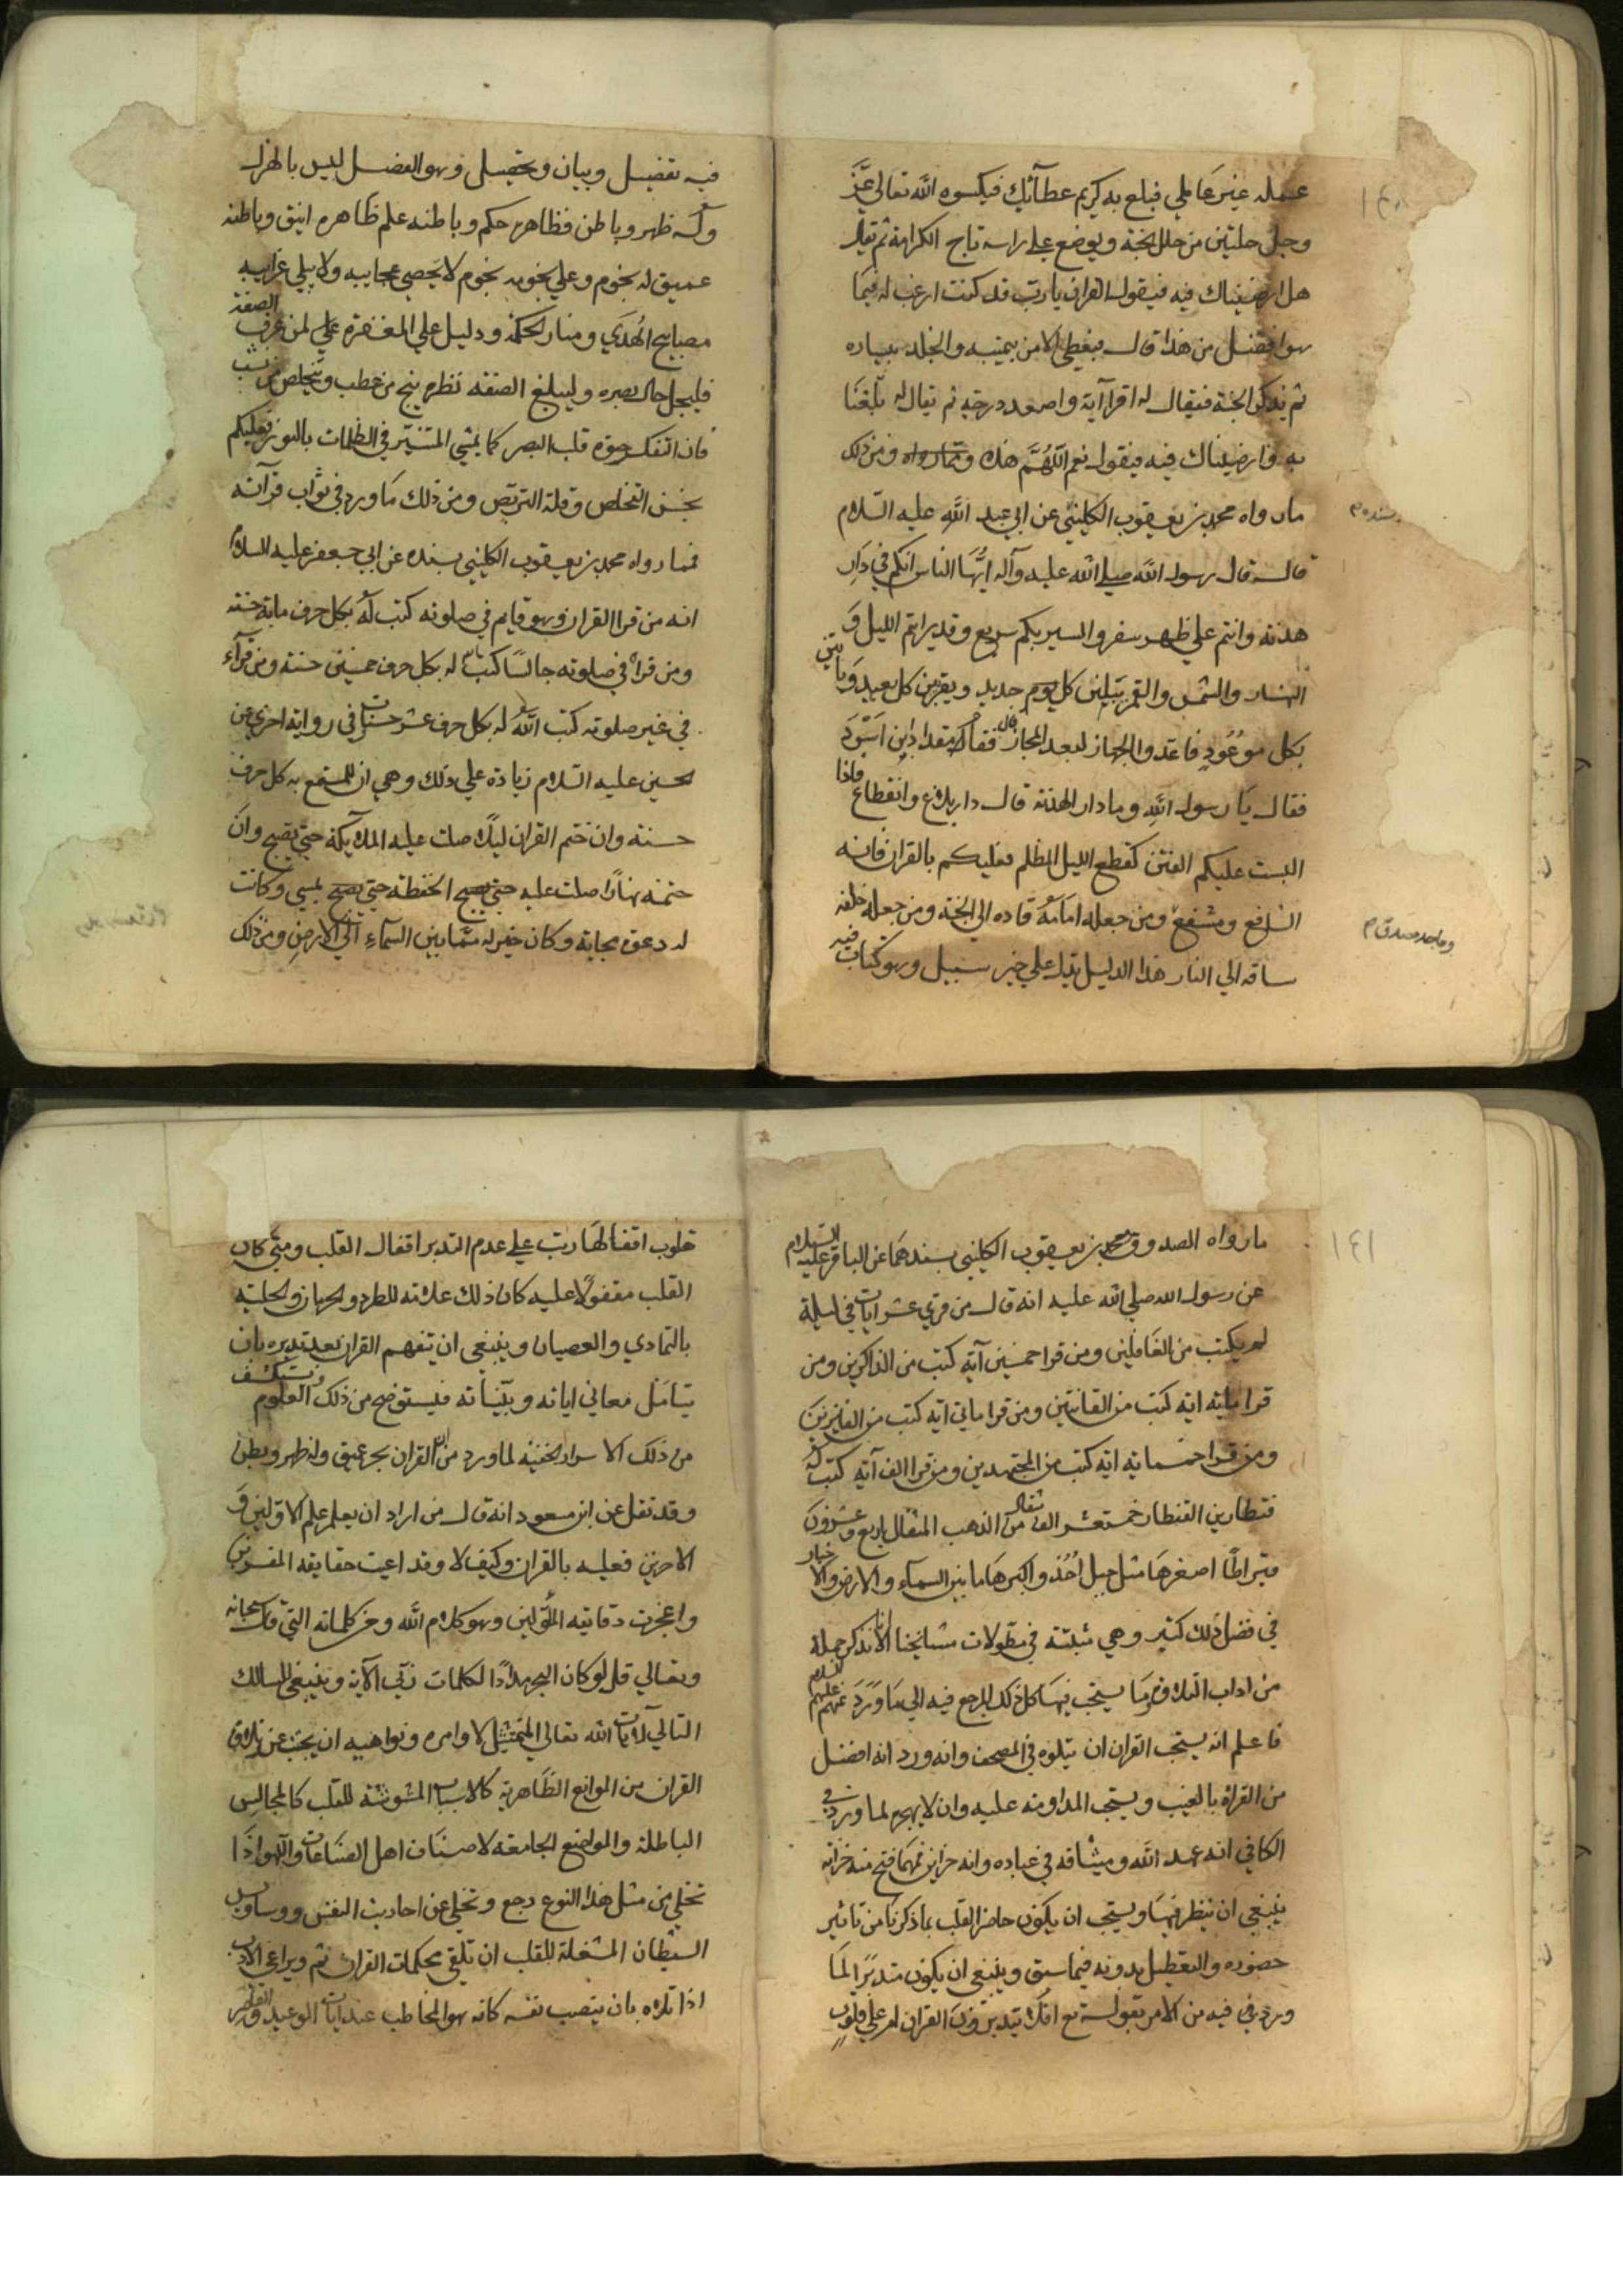 ١٤٠
عمله غير عاملي فبلغ به كريم عطآئك فيكسوه الله تعالي عَزَّ
وجل حلتين من حلل الجنة ويوضع علي راسه تاج الكرامة ثم يقال
هل ارضيناك فيه فيقول القران يا رب قد كنت ارغب له فيما
هو افضل من هذا قال فيعطي الامن بيمينه والخلد بيساره
ثم يدخل الجنة فيقال له اقرا آية واصعد درجة ثم يقال له بلغنا
به وارضيناك فيه فيقول نعم اللَّهُمَّ هذه ومن ذلك
ما رواه محمد بن يعقوب الكليني عن ابي عبد الله عليه السلام
بسنده
قال قال رسول الله صلي الله عليه وآله ايُّهَا الناس انكم في دَارِ
هدنة وانتم علي ظهر سفر والسير بكم سريع وقد رايتم الليل وَ
النهار والشمس والقمر يبلين كل جديد ويقربن كل بعيد وَياتين
بكل موعُودٍ فاعدوا الجهاز لبعد المجاز قال فقام المقداد بن اسْوَد
فقال يَا رسول الله وما دار الهدنة قال دار بلاغ وانقطاع فاذا
البست عليكم الفتن كقطع الليل المظلم فعليكم بالقران فانه
الشافع ومشفع ومن جعله امَامَهُ قاده الي الجنة ومن جعله خلفه
وماحد مصدق
ساقه الي النار هذا الدليل يدل علي خير سبيل وهو كتاب فيه
فيه تفضيل وبيان وتحصيل وهو الفضل ليس بالهزل
وله ظهر وباطن فظاهره حكم وباطنه علم ظَاهره انيق وباطنه
عميق له نجوم وعلي نجومه نجوم لا يحصي عجايبه ولا يبلي غرايبه
مصابيح الهُدَي ومنار الحكمة ودليل علي المغفرة لمن عرف الصفة
فليجل جال بصره وليبلغ الصفة نظره ينج من عطب ويتخلص من نشب
فان التفكر حيوة قلب البصر كما يمشي المستنير في الظلمات بالنور فعليكم
بحسن التخلص وقلة التربص ومن ذلك مَا ورد في ثواب قرآته
فمما رواه محمد بن يعقوب الكليني بسنده عن ابي جعفر عليه السلام
انه من قرا القران وهو قايم في صلوته كتب له بكل حرف ماية حسنة
ومن قراه في صلوته جالسًا كتب له بكل حرف خمسين حسنة ومن قرآء
في غير صلوته كتب اللهُ له بكل حرف عشر حسنات في رواية اخري عن
الحسين عليه السلام زيادة علي ذلك وهي ان للمستمع به كل حرف
حسنة وان ختم القران ليلًا صلت عليه الملآيكة حتي يصبح وان
ختمه نهارًا صلت عليه الحفظة حتي يمسي وكانت
له دعوة مجابة وكان خير له ممَّا بين السمآءِ الي الارضِ ومن ذلك
١٤١
ما رواه الصدوق ومحمد بن يعقوب الكليني بسندهمَا عن الباقر عليه السلام
عن رسول الله صلي الله عليه انه قال من قري عشر ايات في ليلة
لم يكتب من الغَافلين ومن قرا خمسين آية كتب من الذاكرين ومن
قرا ماية اية كتب من القانتين ومن قرا ماتي اية كتب من الفايزين
ومن قرا خمسماية اية كتب من المجتهدين ومن قرا الف آية كتب له
قنطار من القنطار خمسة عشر الف مثقال من الذهب المثقال اربع وَعشرُونَ
قيراطًا اصغرهَا مثل جبل اُحُد واكبرهَا ما بين السمآء والارض والاخبار
في فضل ذلك كثير وهي مثبتة في مطولات مشايخنا الا انا نذكر جملة
من اداب التلاوة وما يستحب فيهَا كل ذلك المرجع فيه الي مَا وَرَدَ عنهم عليهم السلام
فاعلم انه يستحب القران ان يتلوه في المصحف وانه ورد انه افضل
من القراة بالغيب ويستحب المداومة عليه وان لا يهجره لما ورد في
الكافي انه عهد الله وميثاقه في عباده وانه خزاين فمهما فتح منه خزانة
ينبغي ان ينظر فيهَا ويستحب ان يكون حاضر القلب بما ذكرنا من تاثير
حضوره والتعطيل بدونه فيما سبق وينبغي ان يكون متدبرًا لمَا
ورد في فيه من الامر بقوله تع افَلَا يتدبرُونَ القران ام علي قلوب
قلوب اقفالهَا رتب علي عدم التدبر اقفال القلب ومتي كان
القلب مقفولًا عليه كان ذلك علامة للطرد والحرمان والحلية
بالتمادي والعصيان وينبغي ان يتفهم القران بعد تدبره بان
يتَامَل معاني اياته وبَيّناته فيستوضح من ذلك العلوم ويستكشف
من ذلك الاسرار الخفية لما ورد من ان القران بحر عميق وله ظهر وبطن
وقد نقل عن ابن مسعود انه قال من اراد ان يعلم علم الاوّلين وَ
الاخرين فعليه بالقران وكيف لا وقد اعيت حقايقه المفسرين
واعجزت دقايقه المُؤَولين وهو كلام الله ومن كلماته التي قال سبحانه
وتعالي قل لو كان البحر مدادًا لكلمات ربّي الآية وينبغي للسالك
التالي لآيات الله تعالي الممتثل لاوامره ونواهيه ان يجتنب عن تلاوة
القران من الموانع الظَاهرية كالاسباب المشوشة للقلب كالمجالِس
الباطلة والمواضع الجامعة لاصنَاف اهل الصنَاعَات واللّهو اذَا
تخلي من مثل هذا النوع رجع وتخلي عن احاديث النفس ووساوس
الشيطان المشغلة للقلب ان تلقي محكمات القران ثم ويراعي الادب
اذا تلاه بان ينصب نفسه كانه هو المخاطب عند ايات الوعيد